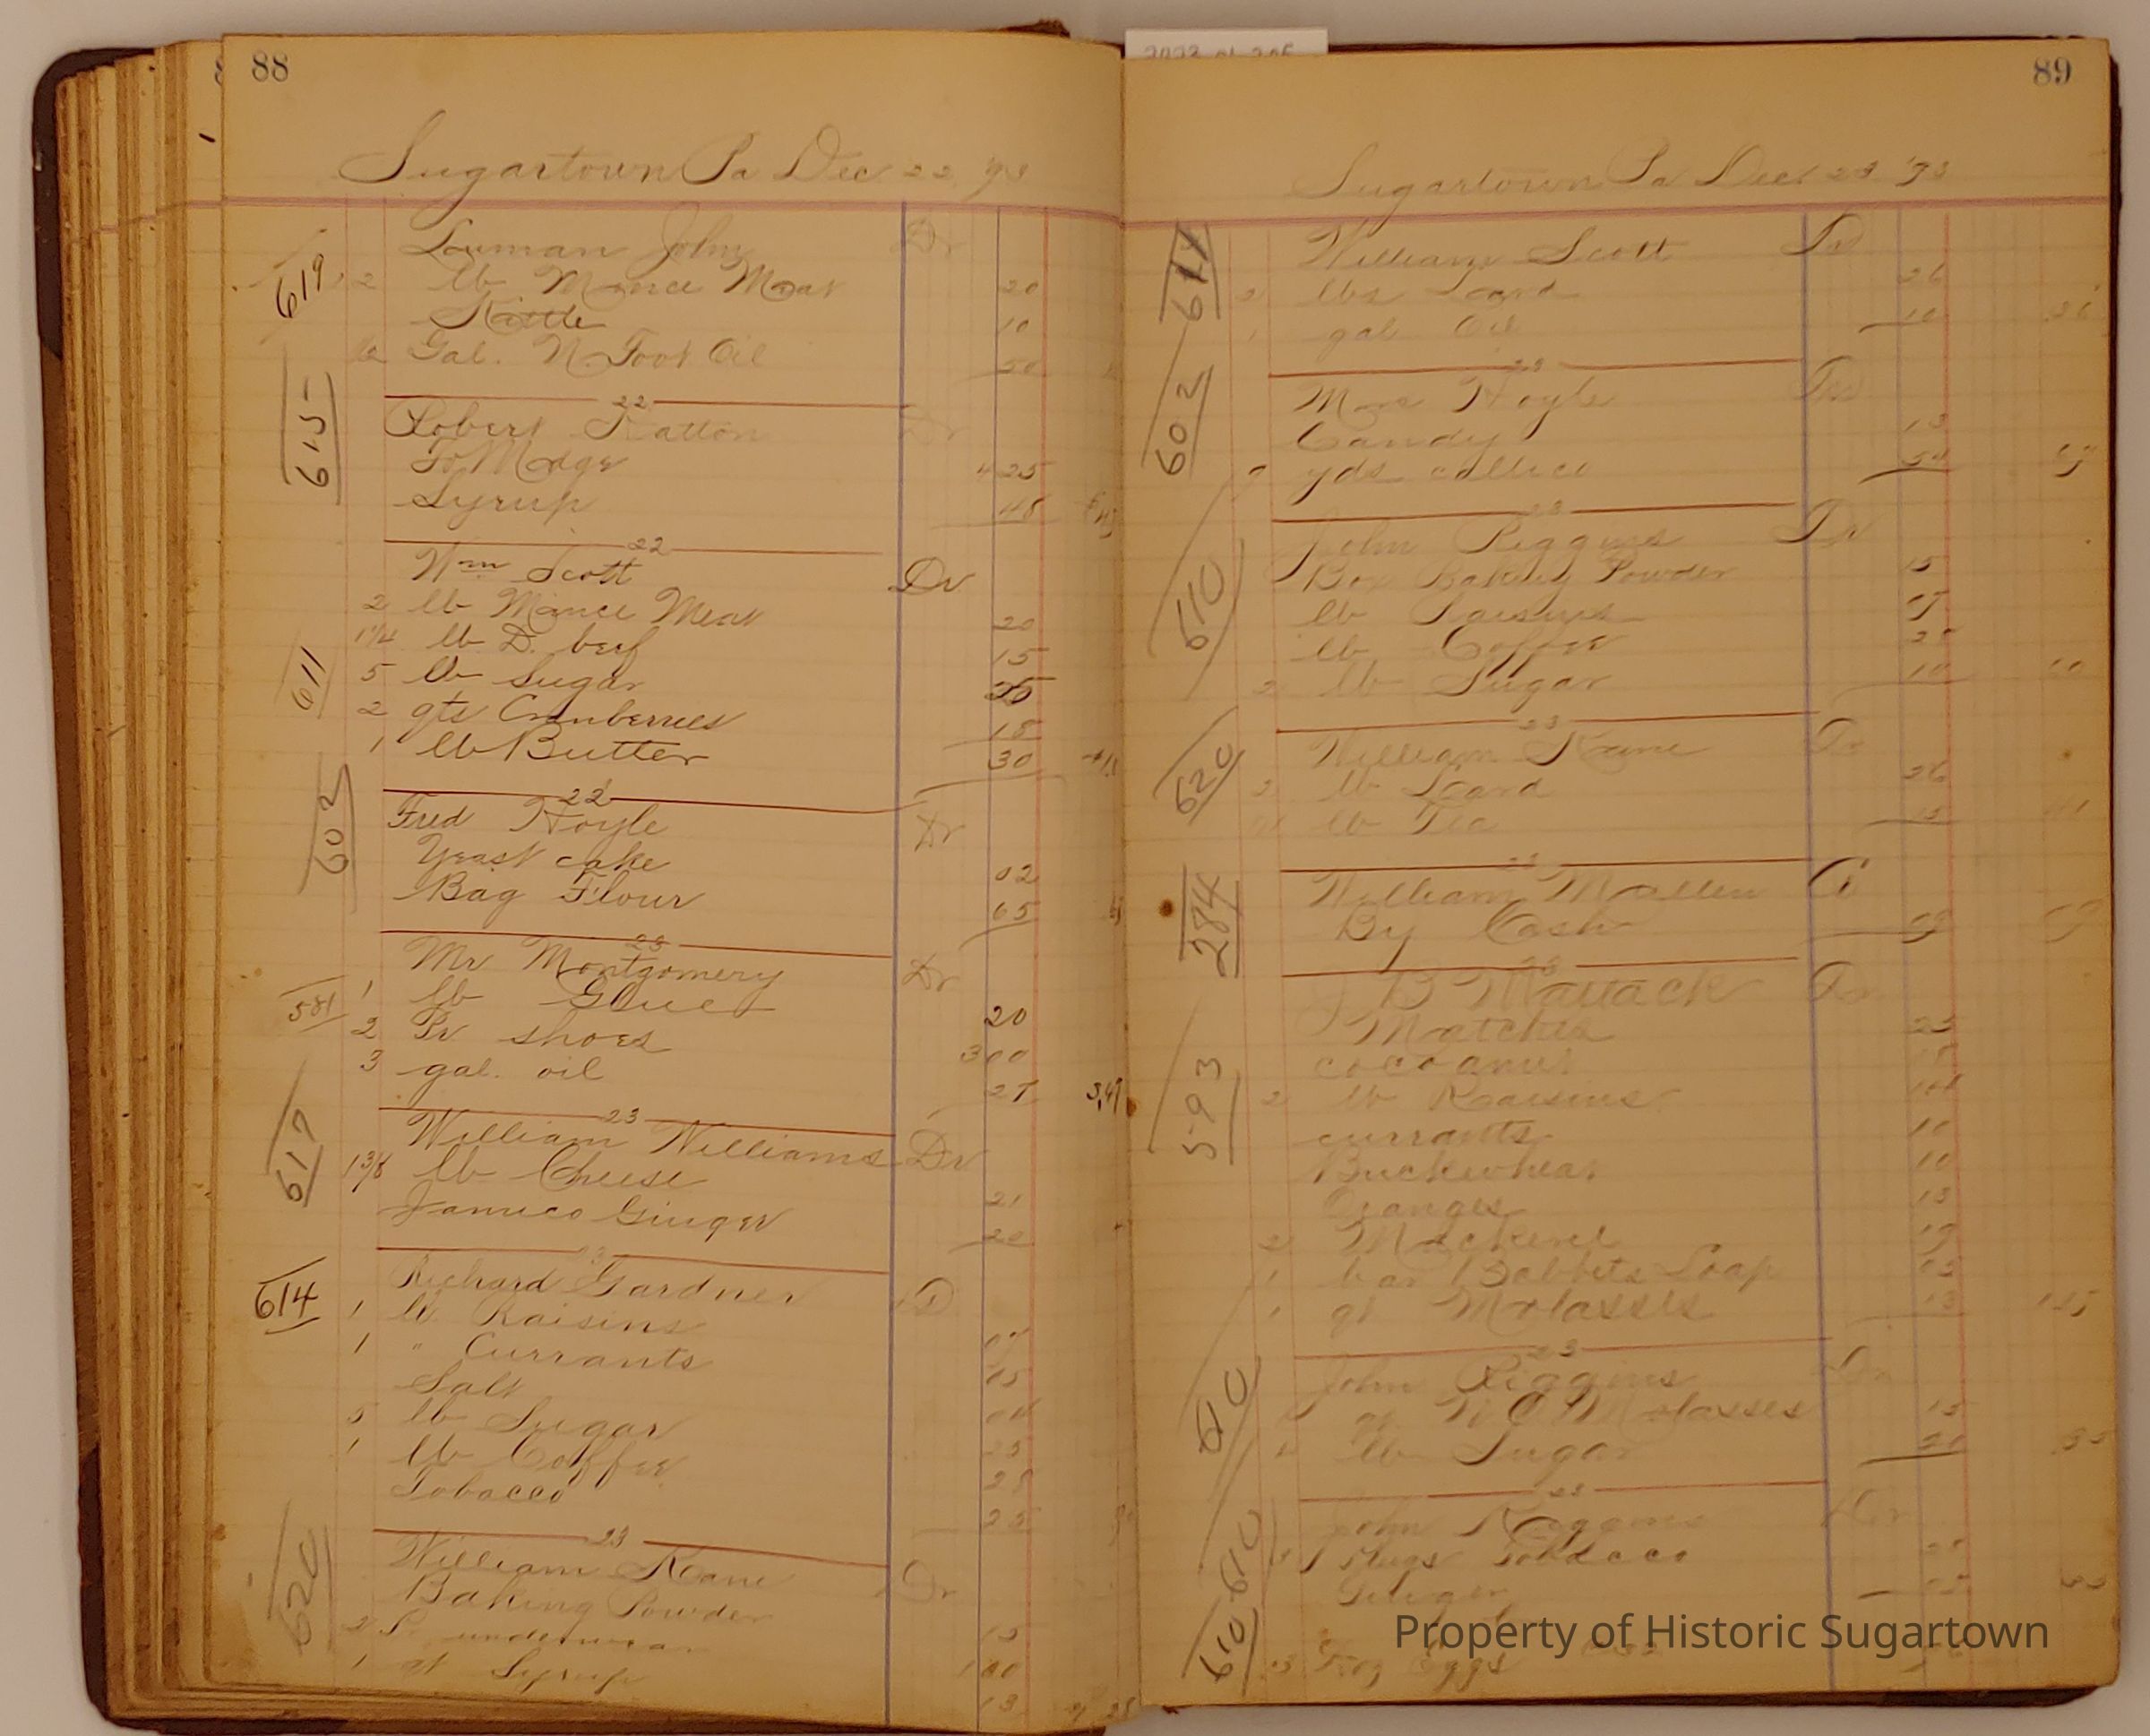 88
Sugartown Pa Dec 22 '93
619
Louman John Dr
2 lb Mince Meat 20
Kettle 10
Gal. N. Foot Oil 50
22
615
Robert Ratton Dr
To Mdge 4 25
Syrup 48
22
Wm Scott Dr
2 lb Mince Meat 20
1 1/4 lb D. beef 15
611
5 lb Sugar 25
2 qts Cranberries 18
1 lb Butter 30
22
602
Fred Hoyle Dr
Yeast cake 02
Bag Flour 65
23
Mr Montgomery Dr
581
1 lb Glue 20
2 Pr shoes 300
3 gal. oil 27 3,47
23
617
William Williams Dr
1 3/8 lb Cheese 21
Jamica Ginger 20
23
614
Richard Gardner D
1 lb Raisins
1 " Currants 15
Salt 04
5 lb Sugar 25
1 lb Coffee 28
Tobacco 25
23
620
William Kane Dr
Baking Powder 15
2 underwear 100
1 qt Syrup 13
89
Sugartown Pa Dec 23 '93
611
William Scott Dr
2 lbs Lard 26
1 gal Oil 10 36
23
602
Mrs Hoyle Dr
Candy 13
yds callico
23
610
John Riggins Dr
Box Baking Powder 15
lb Raisins
lb Coffee
2 lb Sugar 10
23
620
William Kane Dr
2 lb Lard 26
lb Tea 15 41
23
284
William Mullen Cr
By Cash
23
593
J B Mattack Dr
Matches 23
cocoanut
2 lb Raisins
currants 10
Buckwheat 10
Oranges 13
2 Mackerel
1 bar Babbits Soap 05
1 qt Molasses 13
23
610
John Riggins Dr
qt N O Molasses 15
lb Sugar
23
610
John Riggins Dr
Plugs Tobacco
Ginger
610
3 Doz Eggs
Property of Historic Sugartown